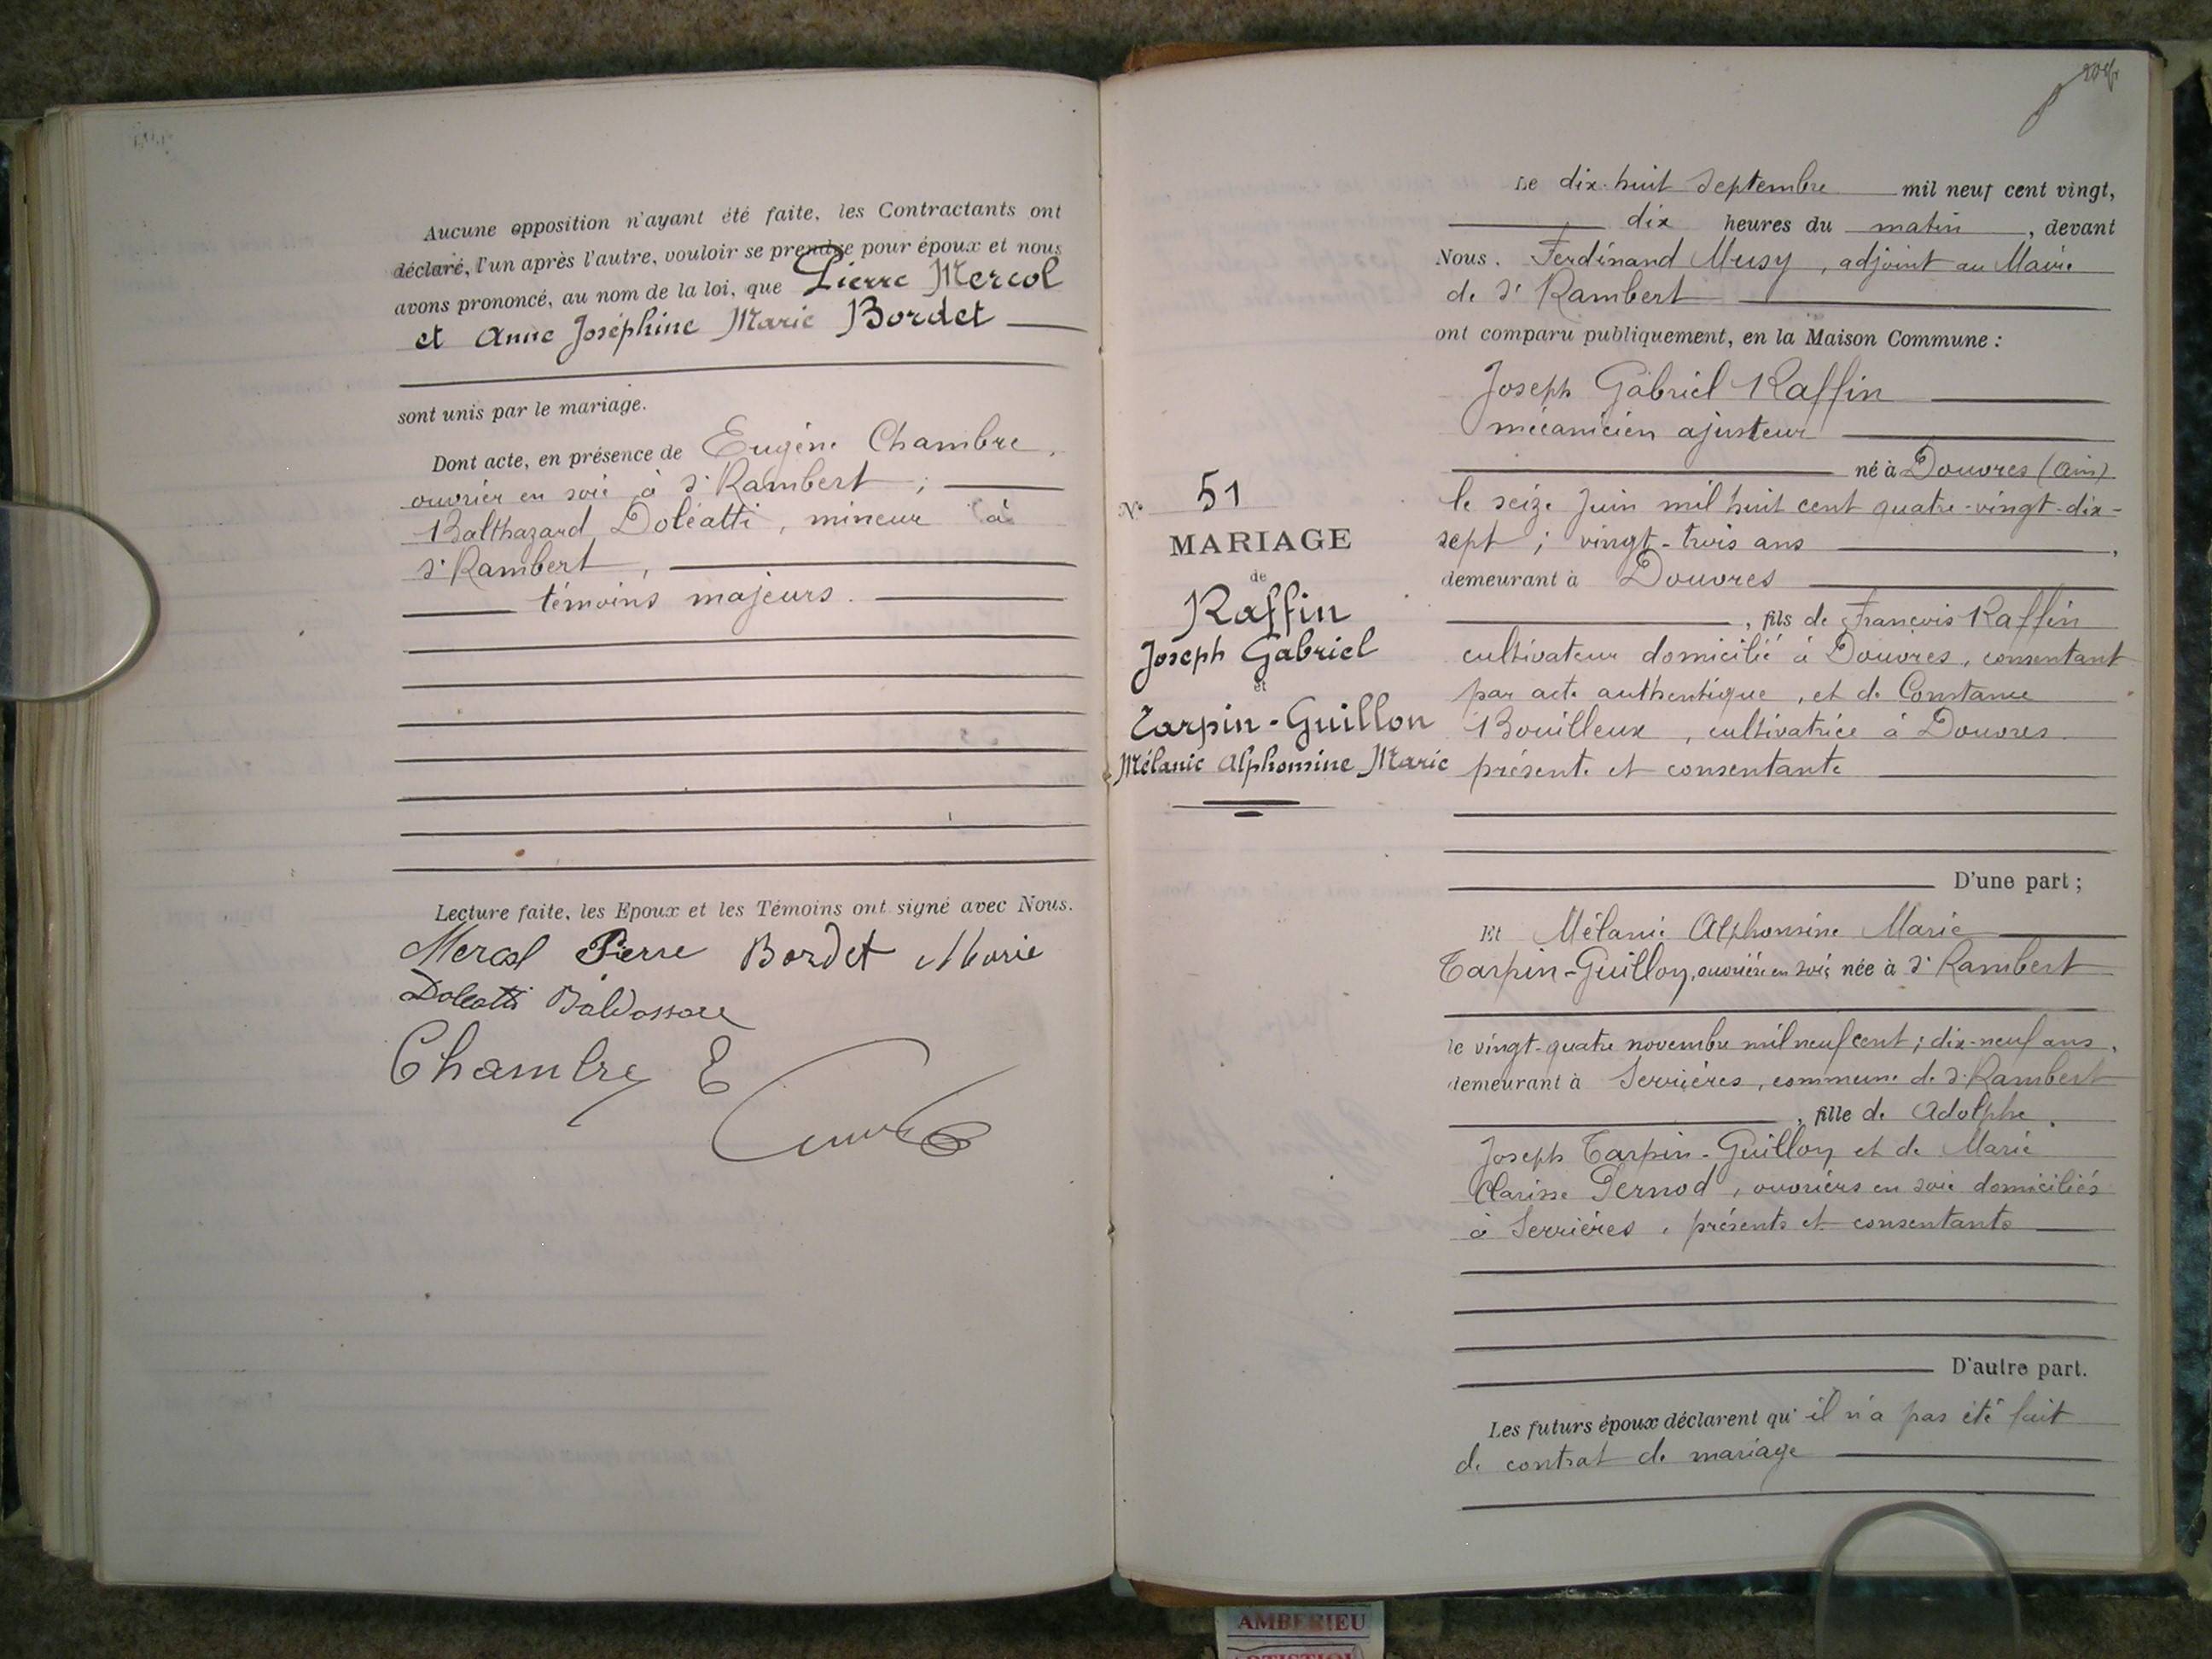 Aucune opposition n'ayant été faite, les Contractants ont
déclaré, l'un après l'autre, vouloir se prendre pour époux et nous
avons prononcé, au nom de la loi, que Pierre Mercol
et Anne Joséphine Marie Bordet
sont unis par le mariage.
Dont acte, en présence de Eugène Chambre,
ouvrier en soie à St Rambert ;
Balthazard Doléatti, mineur à
St Rambert,
témoins majeurs.
Lecture faite, les Epoux et les Témoins ont signé avec Nous.
Mercol Pierre Bordet Marie
Doleatti Baldassare
Chambre E
N° 51
MARIAGE
de
Raffin
Joseph Gabriel
et
Tarpin-Guillon
Mélanie Alphonsine Marie
Le dix-huit Septembre mil neuf cent vingt,
dix heures du matin, devant
Nous. Ferdinand Musy, adjoint au Maire
de St Rambert
ont comparu publiquement, en la Maison Commune :
Joseph Gabriel Raffin
mécanicien ajusteur
né à Douvres (Ain)
le seize Juin mil huit cent quatre-vingt-dix-
sept ; vingt-trois ans,
demeurant à Douvres
, fils de François Raffin
cultivateur domicilié à Douvres, consentant
par acte authentique, et de Constance
Bouilleux, cultivatrice à Douvres
présente et consentante
D'une part ;
Et Mélanie Alphonsine Marie
Tarpin-Guillon, ouvrière en soie, née à St Rambert
le vingt-quatre novembre mil neuf cent ; dix-neuf ans,
demeurant à Serrières, commune de St Rambert
, fille de Adolphe
Joseph Tarpin-Guillon et de Marie
Clarisse Pernod, ouvriers en soie domiciliés
à Serrières, présents et consentants
D'autre part.
Les futurs époux déclarent qu'il n'a pas été fait
de contrat de mariage
AMBERIEU